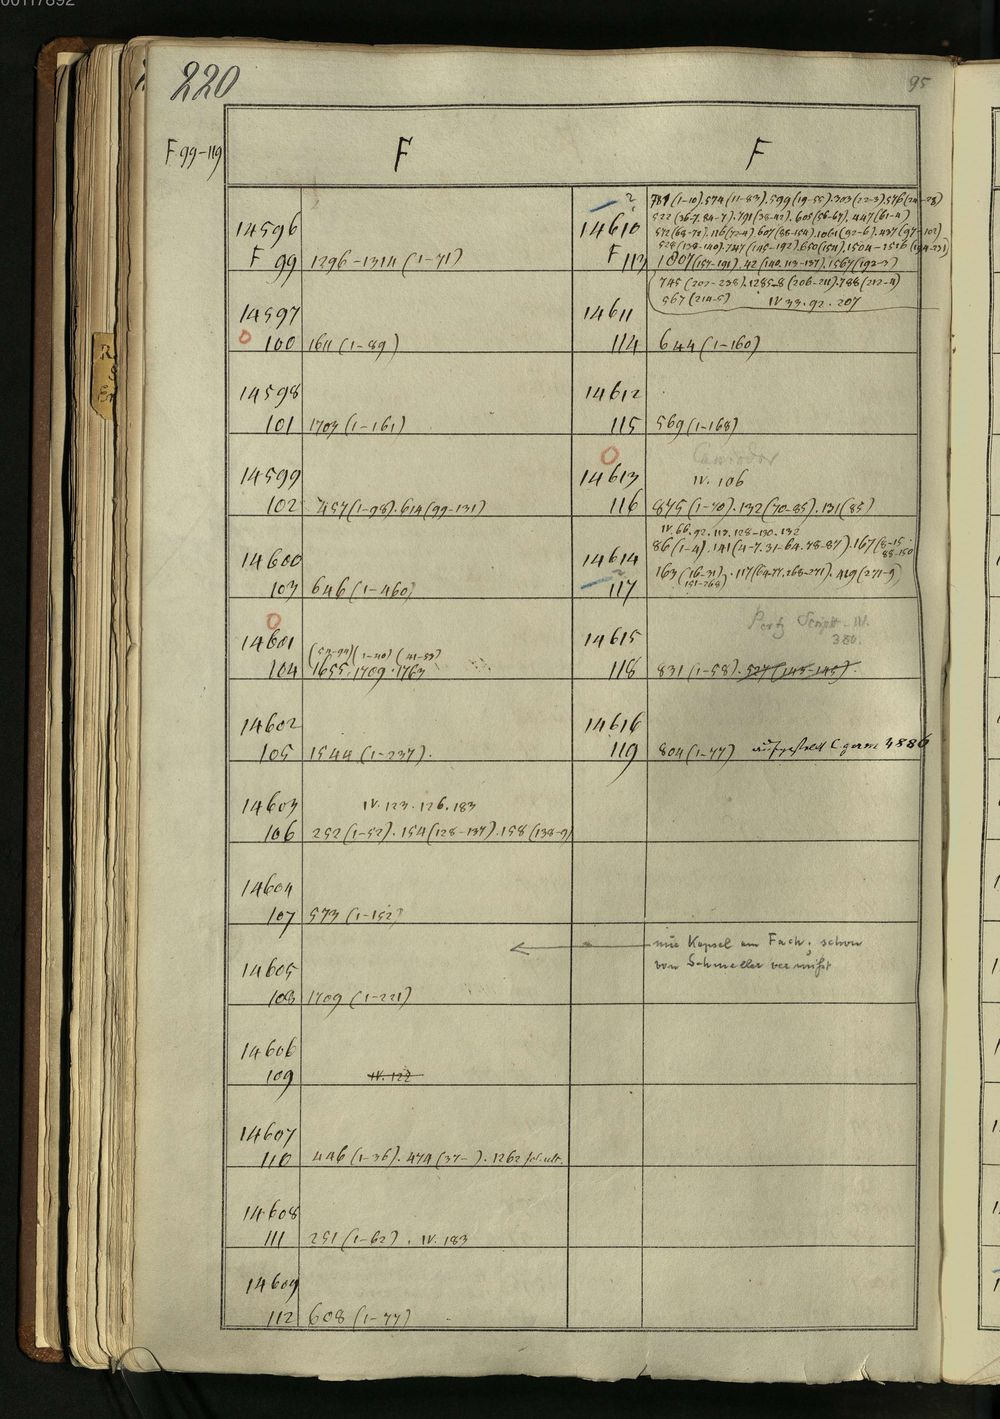 00117892
220
95
F 99-119
F
F
14596
F 99 1296-1314 (1-71)
14597
100 1611 (1-89)
14598
101 1703 (1-161)
14599
102 457 (1-98). 614 (99-131)
14600
103 646 (1-460)
14601
(1-40) (41-53)
104 1655. 1709. 1763
14602
105 1544 (1-237).
14603 IV. 123. 126. 183
106 252 (1-52). 154 (128-137). 158 (138-9)
14604
107 573 (1-152)
14605
108 1709 (1-221)
14606
109 IV. 122
14607
110 446 (1-36). 474 (37- ). 1262 fol. ult.
14608
111 251 (1-62). IV. 183
14609
112 608 (1-77)
?
(1-10). 574 (11-83). 599 (19-55). 303 (22-3). 576
522 (36-7. 84-7). 791 (38-42). 605 (56-67). 447 (61-4)
14610
572 (68-71). 116 (72-4). 607 (88-154). 1061 (92-6). 437 (97-102)
528 (139-140). 747 (145-192). 650 (154). 1504-1516 (194-231)
F 113 1807 (157-191). 42 (140. 113-137). 1567 (192-3)
745 (207-238). 1285-8 (206-211). 788 (212-4)
567 (214-5) IV 33. 92. 207
14611
114 644 (1-160)
14612
115 569 (1-168)
Cassiodor
14613 IV. 106
116 875 (1-70). 132 (70-85). 131 (85)
IV. 66. 92. 113. 128-130. 132
86 (1-4). 141 (4-7. 31-64. 78-87). 167 (8-15. 88-150
14614
163 (16-31) 151-268). 117 (64-77. 268-271). 419 (271-9)
?
117
Pertz Script. III.
380.
14615
118 831 (1-58). 527 (143-145).
14616
119 804 (1-77) aufgestellt C germ 3886
nie Kapsel am Fach, schon
von Schmeller vermißt